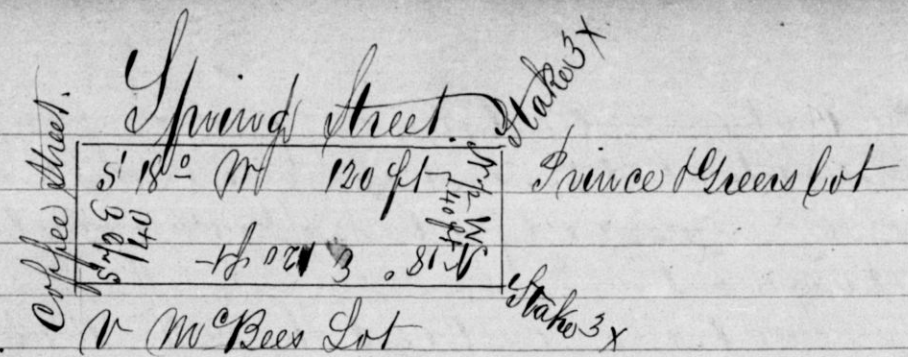 Spring Street.
Stake 3 x
Coffee Street.
S 18° W 120 ft
N 72 W
40 ft
Prince & Greers lot
N 18° E 120 ft
Stake 3 x
V McBees Lot